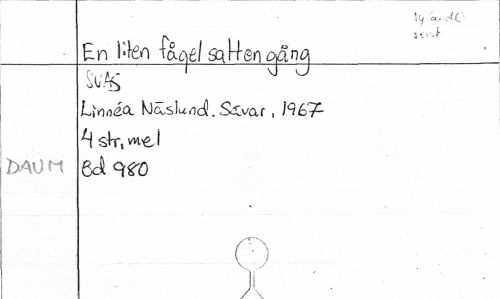 En liten fågel satt en gång
SVAS
Linnéa Näslund. Sävar, 1967
4 str, mel
DAUM Bd 980